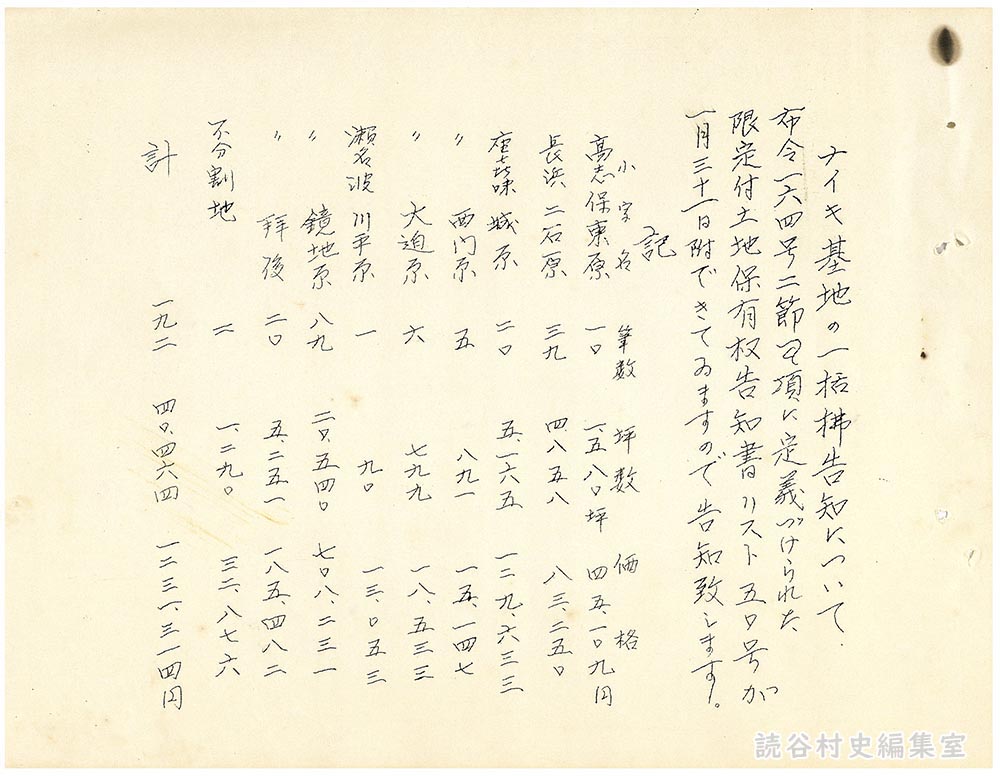 ナイキ基地の一括払告知について
布令一六四号二節 項に定義づけられた
限定付土地保有权告知書リスト五〇号が
一月三十一日附でできてゐますので告知致します。
記
小字名 筆数 坪数 価格
高志保東原 一〇 一五八〇坪 四五.一〇九円
長浜二石原 三九 四八五八 八三.二五〇
座喜味城原 二〇 五.一六五 一二九.六三三
〃 西门原 五 八九一 一五.一四七
〃 大迫原 六 七九九 一八.五三三
瀬名波川平原 一 九〇 一三.〇五三
〃 鏡地原 八九 二〇.五四〇 七〇八.二三一
〃 拝後 二〇 五.二五一 一八五.四八二
不分割地 二 一.二九〇 三二.八七六
計 一九二 四〇.四六四 一二三一.三一四円
読谷村史編集室